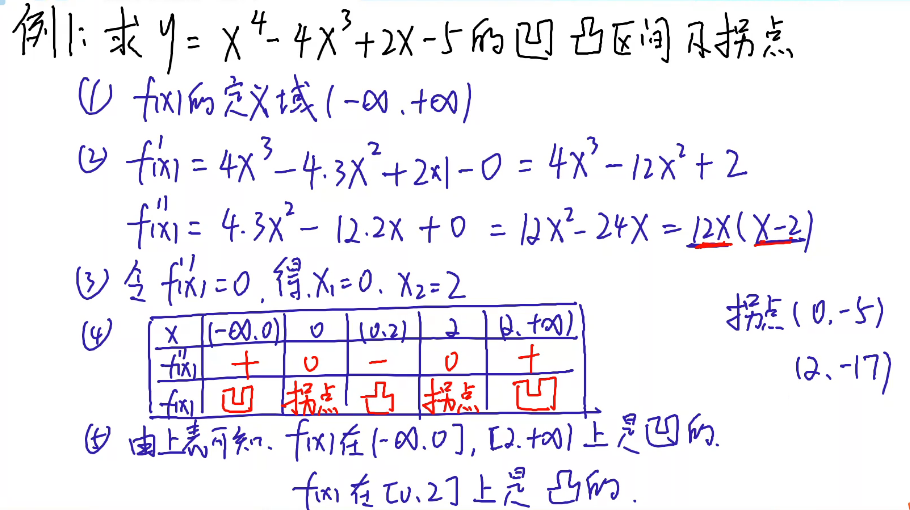 例1: 求 y = x⁴ - 4x³ + 2x - 5 的凹凸区间及拐点
① f(x)的定义域(-∞,+∞)
② f'(x) = 4x³ - 4·3x² + 2×1 - 0 = 4x³ - 12x² + 2
f''(x) = 4·3x² - 12·2x + 0 = 12x² - 24x = 12x(x-2)
③ 令 f''(x) = 0, 得 x₁=0. x₂=2
④
x (-∞,0) 0 (0,2) 2 (2,+∞)
f''(x) + 0 - 0 +
f(x) 凹 拐点 凸 拐点 凹
拐点(0,-5)
(2、-17)
⑤ 由上表可知、f(x)在(-∞,0], [2,+∞)上是凹的.
f(x)在[0,2]上是凸的.